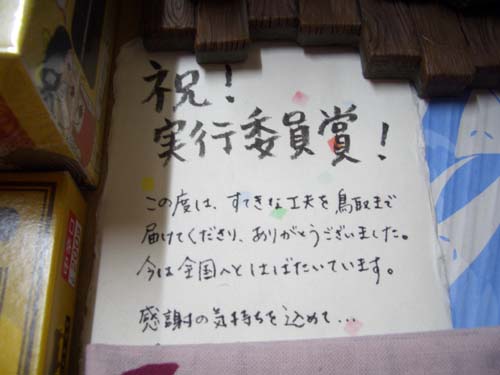 祝！
実行委員賞！
この度は、すてきな工夫を鳥取まで
届けてくださり、ありがとうございました。
今は全国へとはばたいています。
感謝の気持ちを込めて…